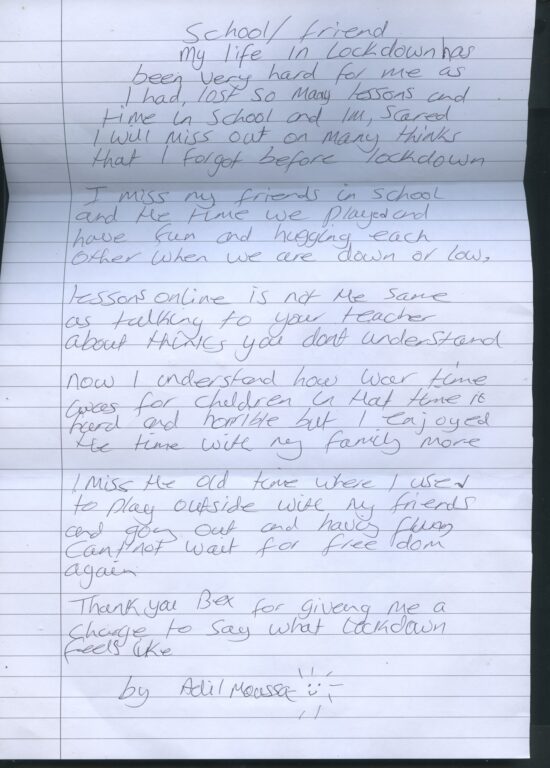 School/ friend
My life in Lockdown has
been very hard for me as
I had, lost so many lessons and
time in school and Im, scared
I will miss out on many thinks
that I forgot before lockdown
I miss my friends in school
and the time we played and
have fun and hugging each
other when we are down or low,
lessons online is not the same
as talking to your teacher
about thinks you dont understand
now I understand how war time
was for children in that time it
hard and horrible but I enjoyed
the time with my family more
I Miss the old time where I used
to play outside with my friends
and going out and having
Cant not wait for free dom
again
Thank you Bex for giveng me a
charge to say what Lockdown
feels like
by Adil Moussa